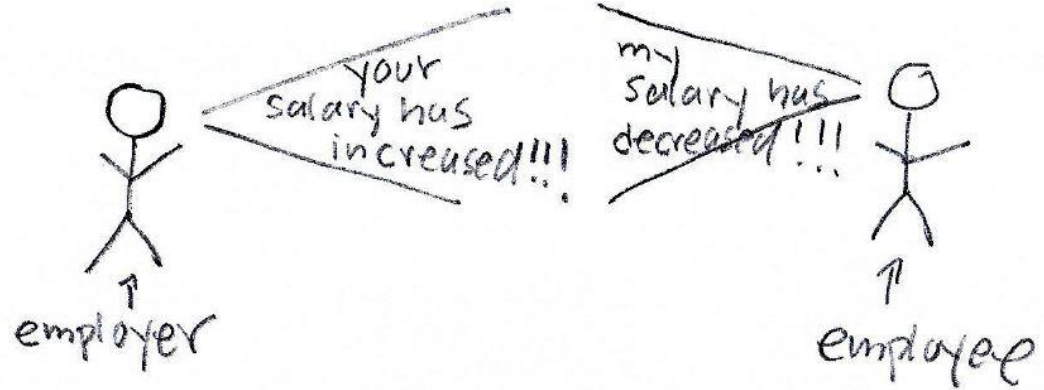 your
salary has
increased!!!
my
salary has
decreased!!!
employer
employee